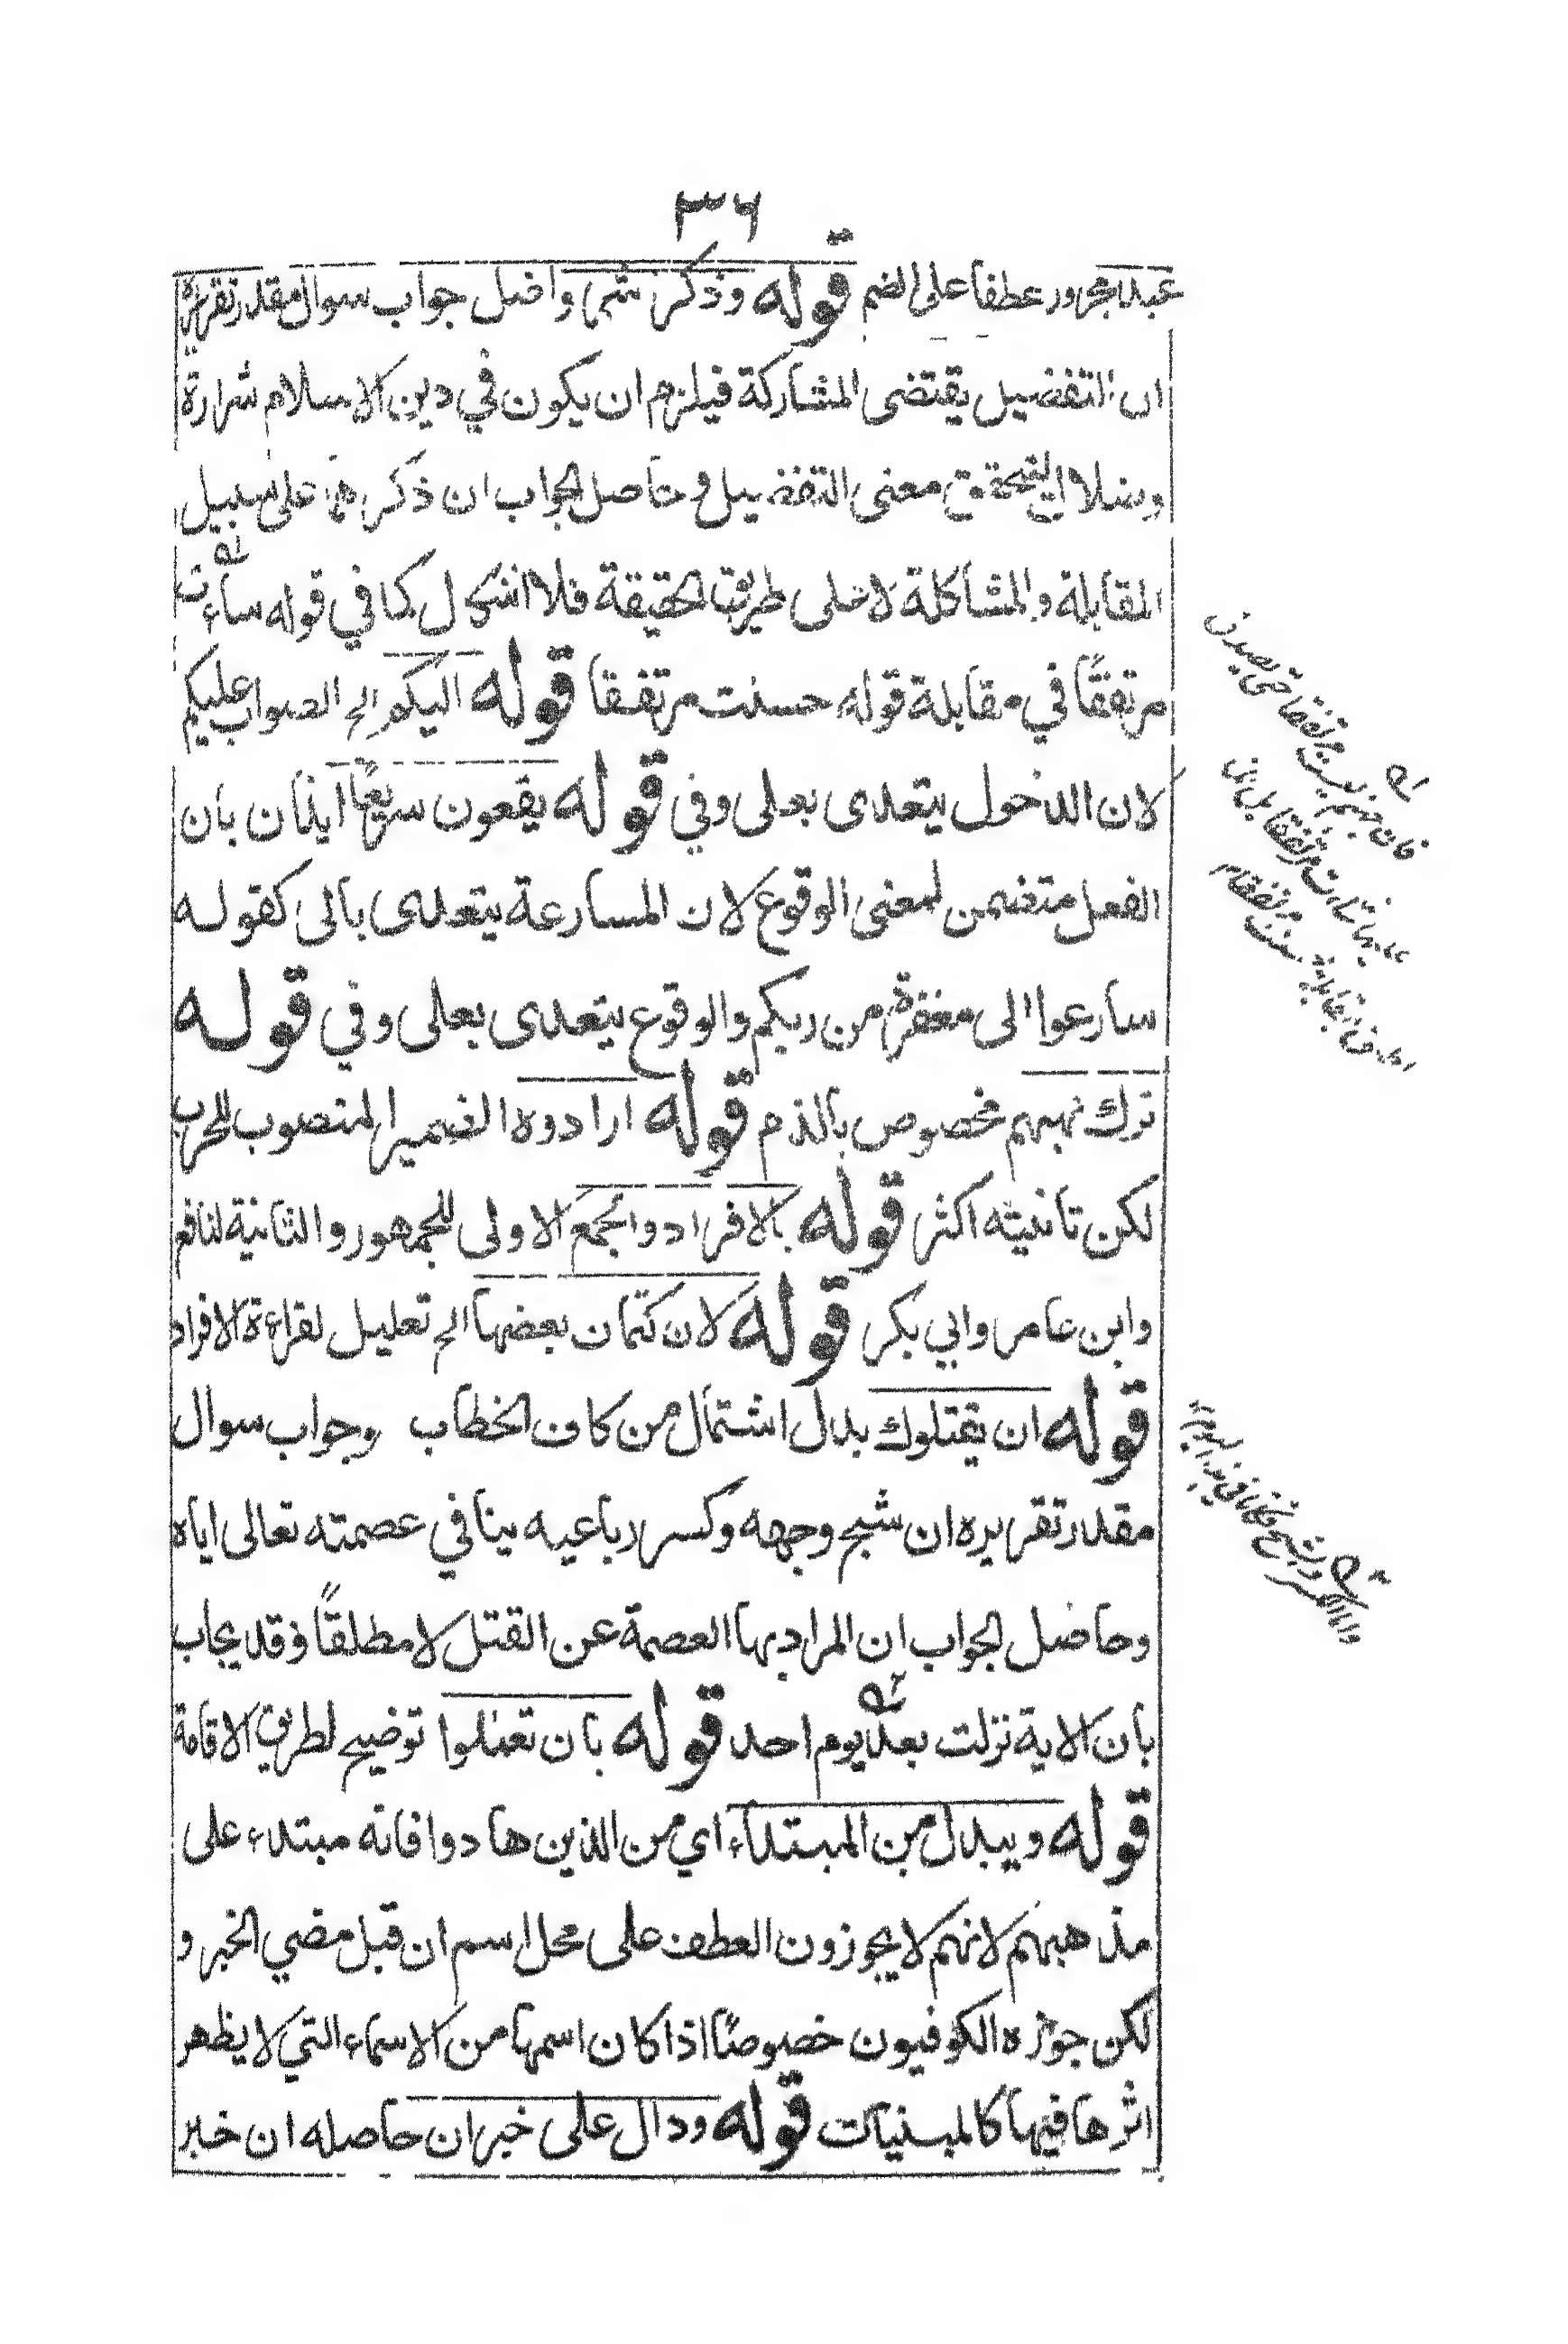 ٣٦
عبد مجرور عطفا على الضم قوله وذكر شر واضل جواب سوال مقدر تقريره
ان التفضيل يقتضى المشاركة فيلزم ان يكون في دين الاسلام شرارة
وضلال ليتحقق معنى التفضيل وحاصل الجواب ان ذكرهما على سبيل
المقابلة والمشاكلة لا على طريق الحقيقة فلا اشكال كما في قوله ساءت
مرتفقًا في مقابلة قوله حسنت مرتفقا قوله اليكم الخ الصواب عليكم
لان الدخول يتعدى بعلى وفي قوله يقعون سريعًا ايذان بان
الفعل متضمن لمعنى الوقوع لان المسارعة يتعدى بالى كقوله
سارعوا الى مغفرة من ربكم والوقوع يتعدى بعلى وفي قوله
ترك نهيهم مخصوص بالذم قوله ارادوه الضمير المنصوب للحرب
لكن تانيثه اكثر قوله بالافراد والجمع الاولى للجمهور والثانية لنافع
وابن عامر وابي بكر قوله لان كتمان بعضها الخ تعليل لقراءة الافراد
قوله ان يقتلوك بدل اشتمال من كاف الخطاب وجواب سوال
مقدر تقريره ان شج وجهه وكسر رباعيه ينافي عصمته تعالى اياه
وحاصل الجواب ان المراد بها العصمة عن القتل لا مطلقًا وقد يجاب
بان الاية نزلت بعد يوم احد قوله بان تعملوا توضيح لطريق الاقامة
قوله ويبدل من المبتداء اي من الذين هادوا فانه مبتدء على
مذهبهم لانهم لا يجوزون العطف على محل اسم ان قبل مضي الخبر و
لكن جوزه الكوفيون خصوصًا اذا كان اسمها من الاسماء التي لا يظهر
اثرها فيها كالمبنيات قوله ودال على خبر ان حاصله ان خبر